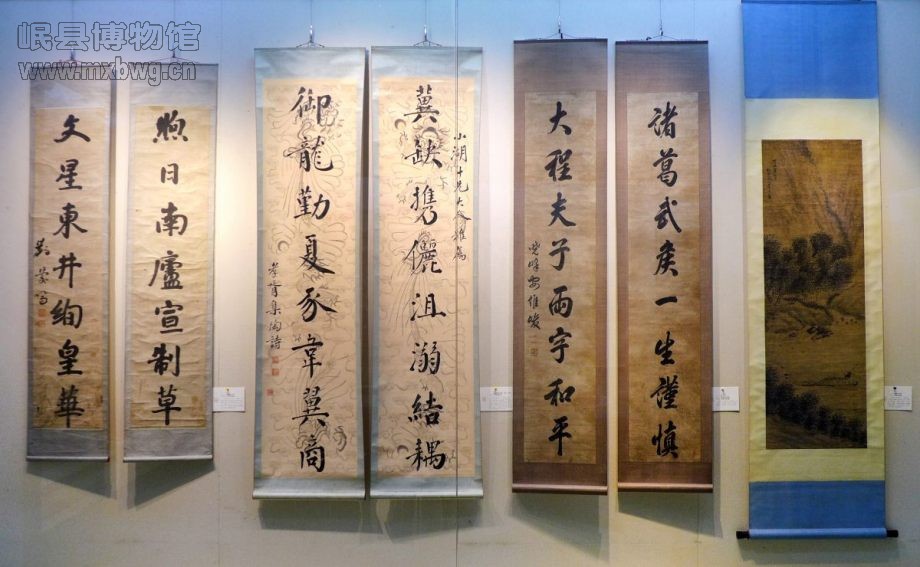 岷县博物馆
www.mxbwg.cn
諸葛武侯一生謹慎
大程夫子兩字和平
曉峰安維峻
小湖十兄大人雅屬
冀缺攜儷沮溺結耦
御龍勤夏豕韋翼商
孝胥集陶詩
煦日南廬宣制草
文星東井絢皇華